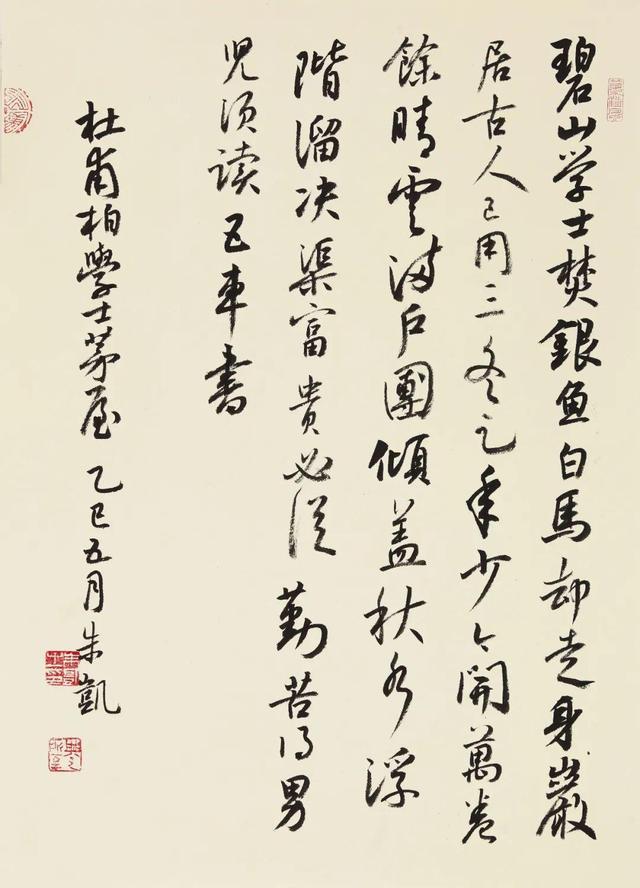 碧山学士焚銀鱼白馬却走身巖
居古人已用三冬足年少今開萬卷
餘晴雲满户團傾盖秋水浮
階溜决渠富貴必從勤苦得男
児须读五車書
杜甫柏學士茅屋 乙巳五月朱凱